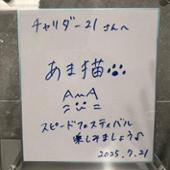 チャリダー21さんへ
あま猫
AMA
スピードフェスティバル
楽しみましょう♪
2025.9.21